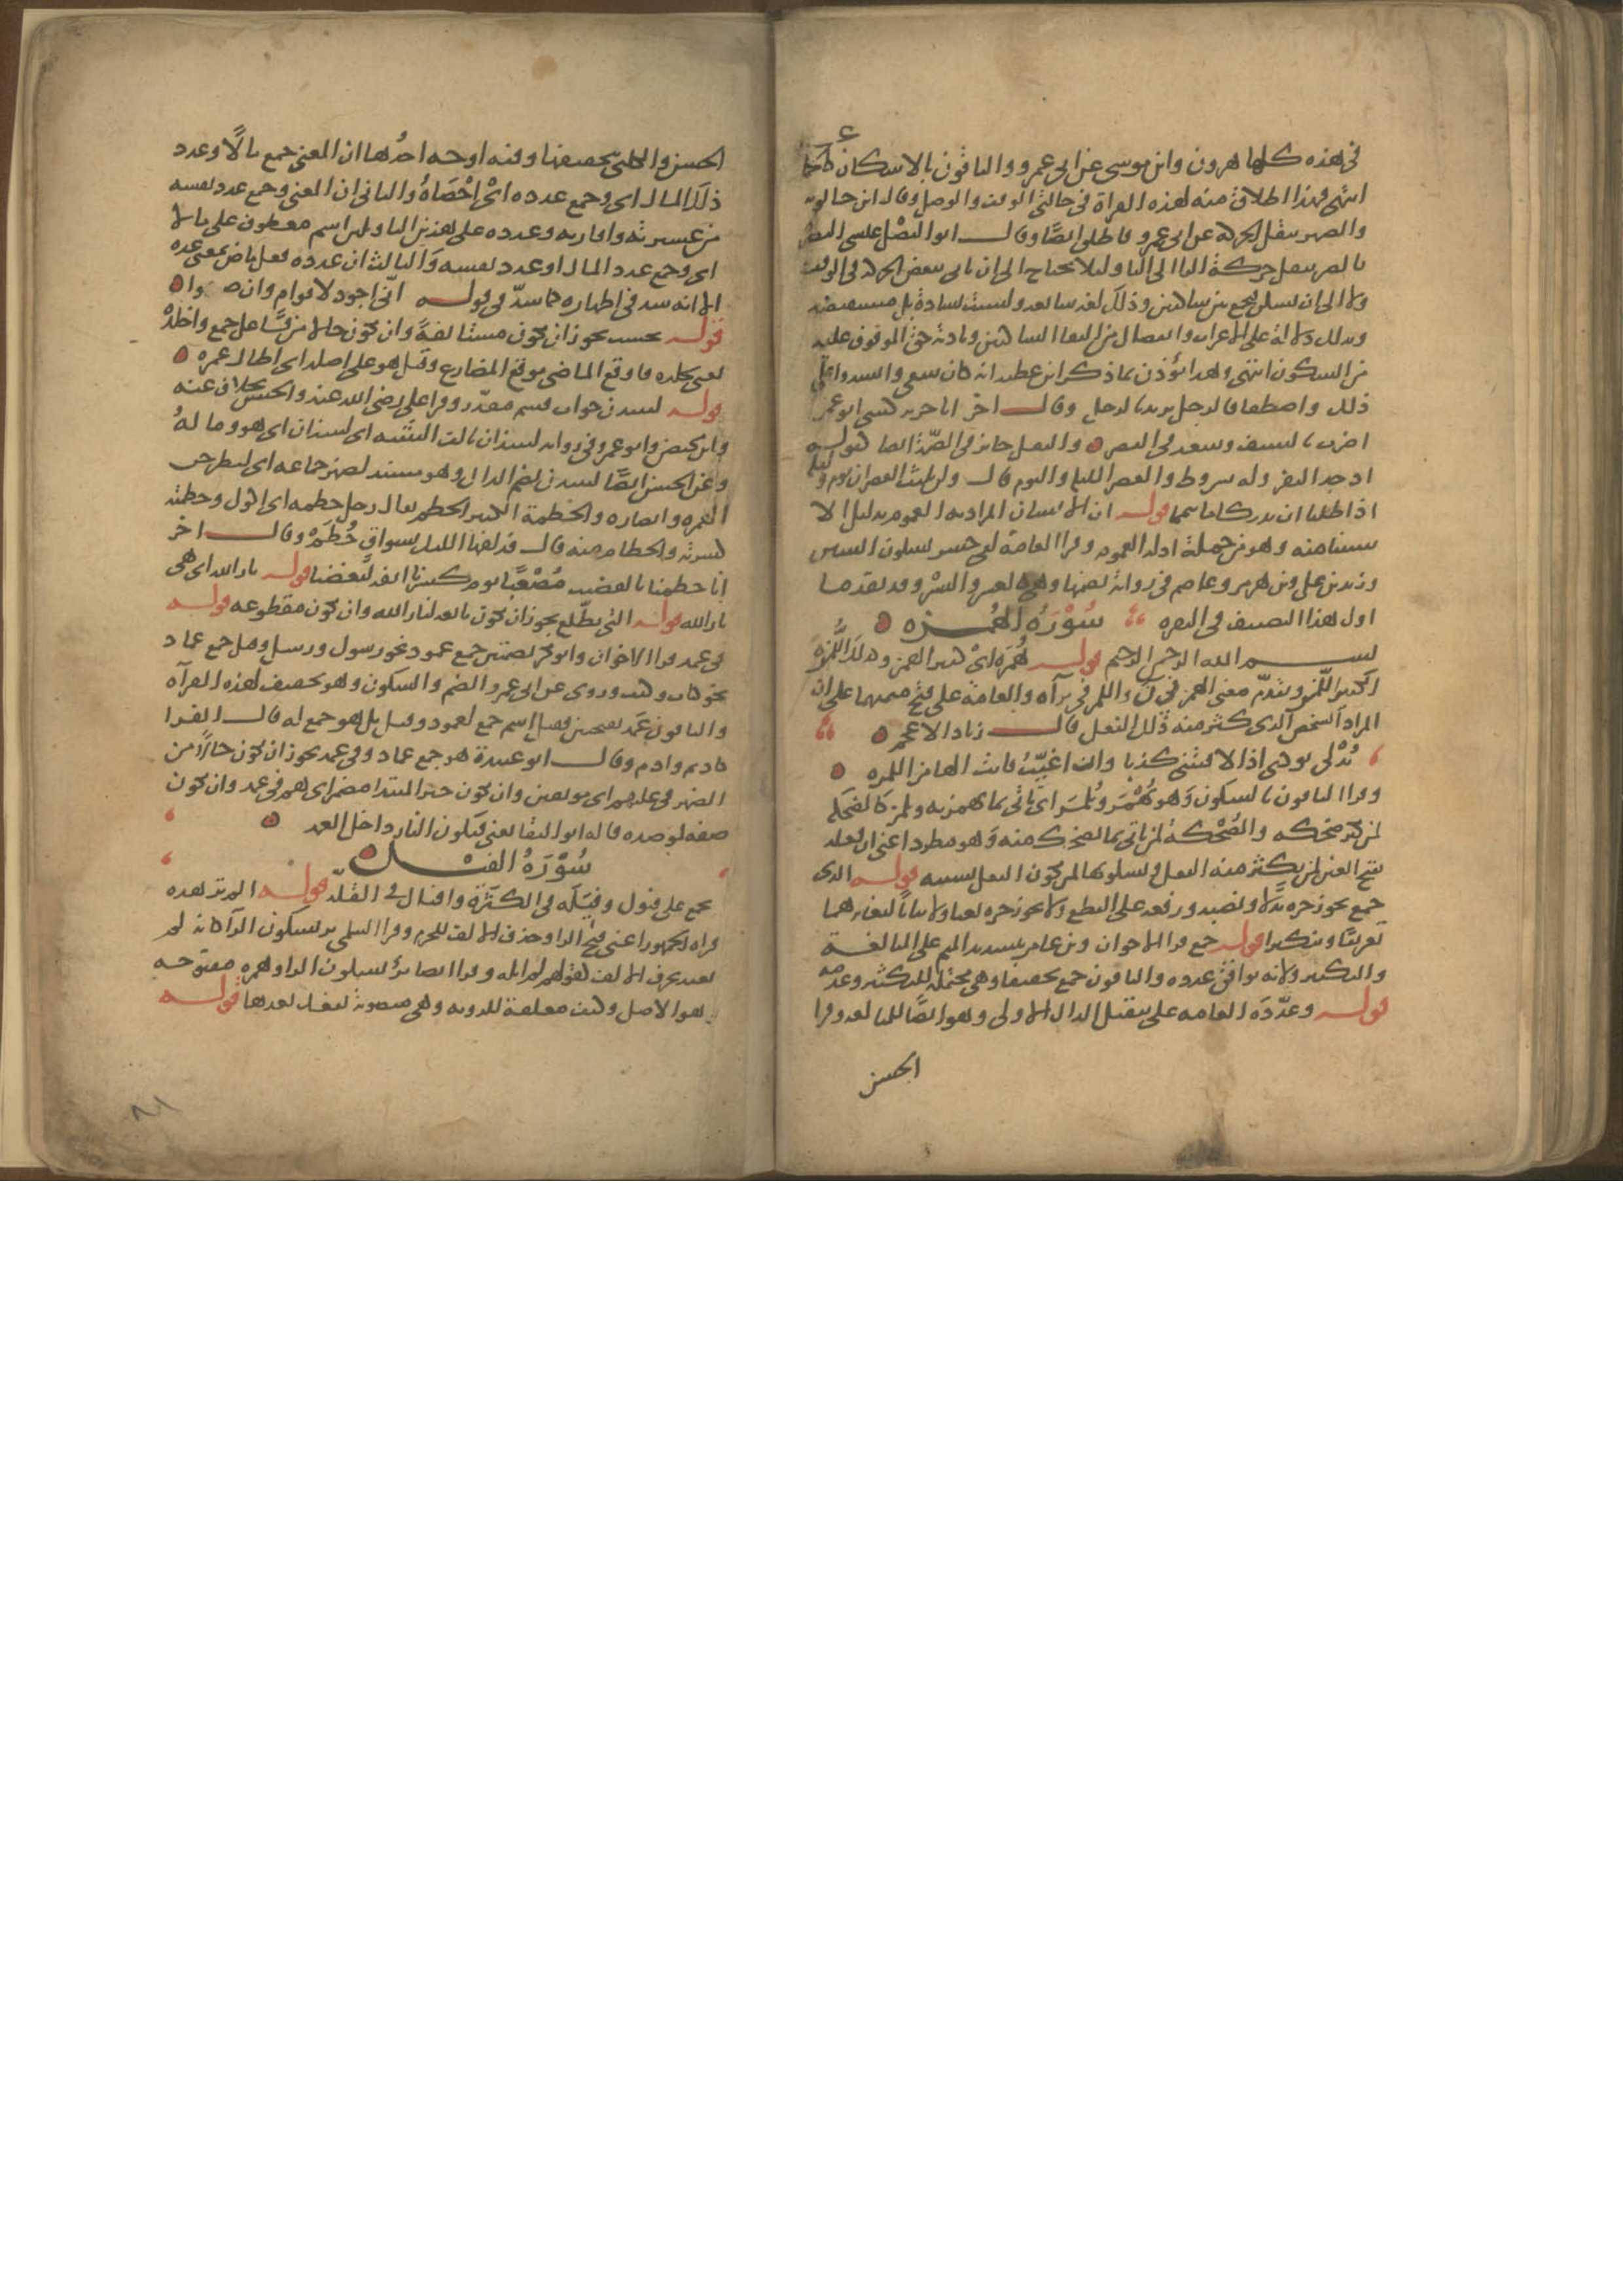 في هذه كلها هرون وابن موسى عن ابي عمرو والباقون بالاسكان كالجماعة
انتهى فهذا اطلاق منه لهذه القراة في حالتي الوقف والوصل وقال ابن خالويه
والصبر بنقل الحركة عن ابي عمرو فاطلق ايضًا وقال ابو الفضل عيسى البصر
بالصبر بنقل حركة الراء الى الباء ولئلا يحتاج الى ان ياتي ببعض الحركة في الوقف
ولا الى ان يسكن فيجمع بين ساكنين وذلك لغة شايعة وليست بشاذة بل مستفيضة
وذلك دلالة على الاعراب وانفصال من التقاء الساكنين وتادية حق الموقوف عليه
من السكون انتهى وهذا يؤذن بما ذكر ابن عطية انه كان ينبغي وانشدوا على
ذلك واصطفافا لرجل يريد بالرجل وقال اخر انا جرير كنيتي ابو عمرو
اضرب بالسيف وسعد في القصر والنقل جايز في الضمة ايضا كقوله
اذ جد النقر وله شروط والعصر الليلة واليوم قال ولن يلبث العصران يوم وليلة
اذا طلبا ان يدركا ما تيمما قوله ان الانسان المراد به العموم بدليل الا
ستثنا منه وهو من جملة ادلة العموم وقرا العامة لفي خسر بسكون السين
وزيد بن علي وبن هرمز وعاصم في رواية بضمها وهي كالعسر واليسر وقد تقدم ما
اول هذا التصنيف في البقره سُوْرَةُ الهُمَزه
بسم الله الرحمن الرحيم قوله هُمَزة اىْ كثير الهمز وكذلك اللُّمَزه
الكثير اللّمز وتقدّم معنى الهمز في ن واللمز في برآه والعامة على فتح ميمهما على ان
المراد الشخص الذي كثر منه ذلك الفعل قال زياد الاعجم
تُدْلي بودي اذا لاقيتني كذبا وان اغيّبْ فانت الهامز اللمزه
وقرا الباقون بالسكون وَهو يُهْمَز ويُلْمَز اى ياتي بما يهمز به ويلمز كالضحكه
لمن كثر ضحكه والضُّحْكة لمن ياتي بما يضحك منه وهو مطرد اعني ان فعلة
بفتح العين لمن يكثر منه الفعل وبسكونها لمن يكون الفعل بسببه قوله الذى
جمع يجوز جره بدلا ونصبه ورفعه على القطع ولا يجوز جره نعتا ولا بيانا لتغايرهما
تعريفًا وتنكيرا قوله جمع قرا الاخوان وبن عامر بتشديد الميم على المبالغة
والتكثير ولانه يوافق عدده والباقون جمع تخفيفا وهي محتملة للتكثير وعدمه
قوله وعدّدَه العامه على تثقيل الدال الاولى وهو ايضًا للمبالغه وقرا
الحسن
الحسن والكلبيّ بتخفيفها وفيه اوجه احدُها ان المعنى جمع مالًا وعدد
ذلك المال اى وجمع عدده اىْ اَحْصَاهُ والثاني ان المعنى وجمع عدد نفسه
من عشيرته واقاربه وعدده على هذين التاويلين اسم معطوف على مالا
اى وجمع عدد المال او عدد نفسه وَالثالث ان عدده فعل ماض بمعنى عده
الا انه شذ في اظهاره كما شذّ في قوله انّي اجود لاقوام وان ضننوا
قوله يحسب يجوز ان يكون مستانفةً وان يكون حالا من فاعل جمع واخلدهْ
بمعنى يخلده فاوقع الماضي موقع المضارع وقيل هو على اصله اى اطال عمره
قوله لينبذن جواب قسم مقدّر وقرا علي رضي الله عنه والحسن بخلاف عنه
وابن محيصن وابو عمرو في روايه لينبذان بالف التثنيه اى لينبذان اى هو وما لهُ
وعن الحسن ايضًا لينبذن بضم الدال وهو مسند لضمير جماعه اى ليطرحن
الهمزه وانصاره والحُطمة الكثير الحطم يقال رجل حطمه اى اكول وحطمته
كسرته والحطام منه قال قد لفها الليل بسواق حُطَمْ وقال اخر
انا حطمنا بالقضيب مُصْعَبًا يوم كسرنا انفه ليغضبا قوله نار الله اى هي
نار الله قوله التي تطّلع يجوز ان تكون تابعة لنار الله وان تكون مقطوعه قوله
في عمد قرا الاخوان وابو بكر بضمتين جمع عمود نحو رسول ورسل وقيل جمع عماد
نحو كتاب وكتب وروى عن ابي عمرو الضم والسكون وهو تخفيف لهذه القرآه
والباقون عَمَد بفتحتين فقيل اسم جمع لعمود وقيل بل هو جمع له قال الفرا
كاديم وادم وقال ابو عبيدة هو جمع عماد وفي عمد يجوز ان يكون حالًا من
الضمير في عليهم اى موثقين وان يكون خبر المبتدا مضمر اى هم في عمد وان يكون
صفة لموصده قاله ابو البقا يعني فتكون النار داخل العمد
سُوْرَةُ الفيل
يجمع على فيول وفيَلَه في الكثرَة وافيال في القلّه قوله الم تر هذه
قراه الجمهور اعني فتح الرا وحذف الالف للجزم وقرا السلمي تر بسكون الرآ كانه لم
يعتد بحذف الالف كقولهم لم ابله وقرا ايضا ترؤ بسكون الرا وهمزه مفتوحه
وهو الاصل وكيف معلقة للرويه وهي منصوبة بفعل بعدها قوله